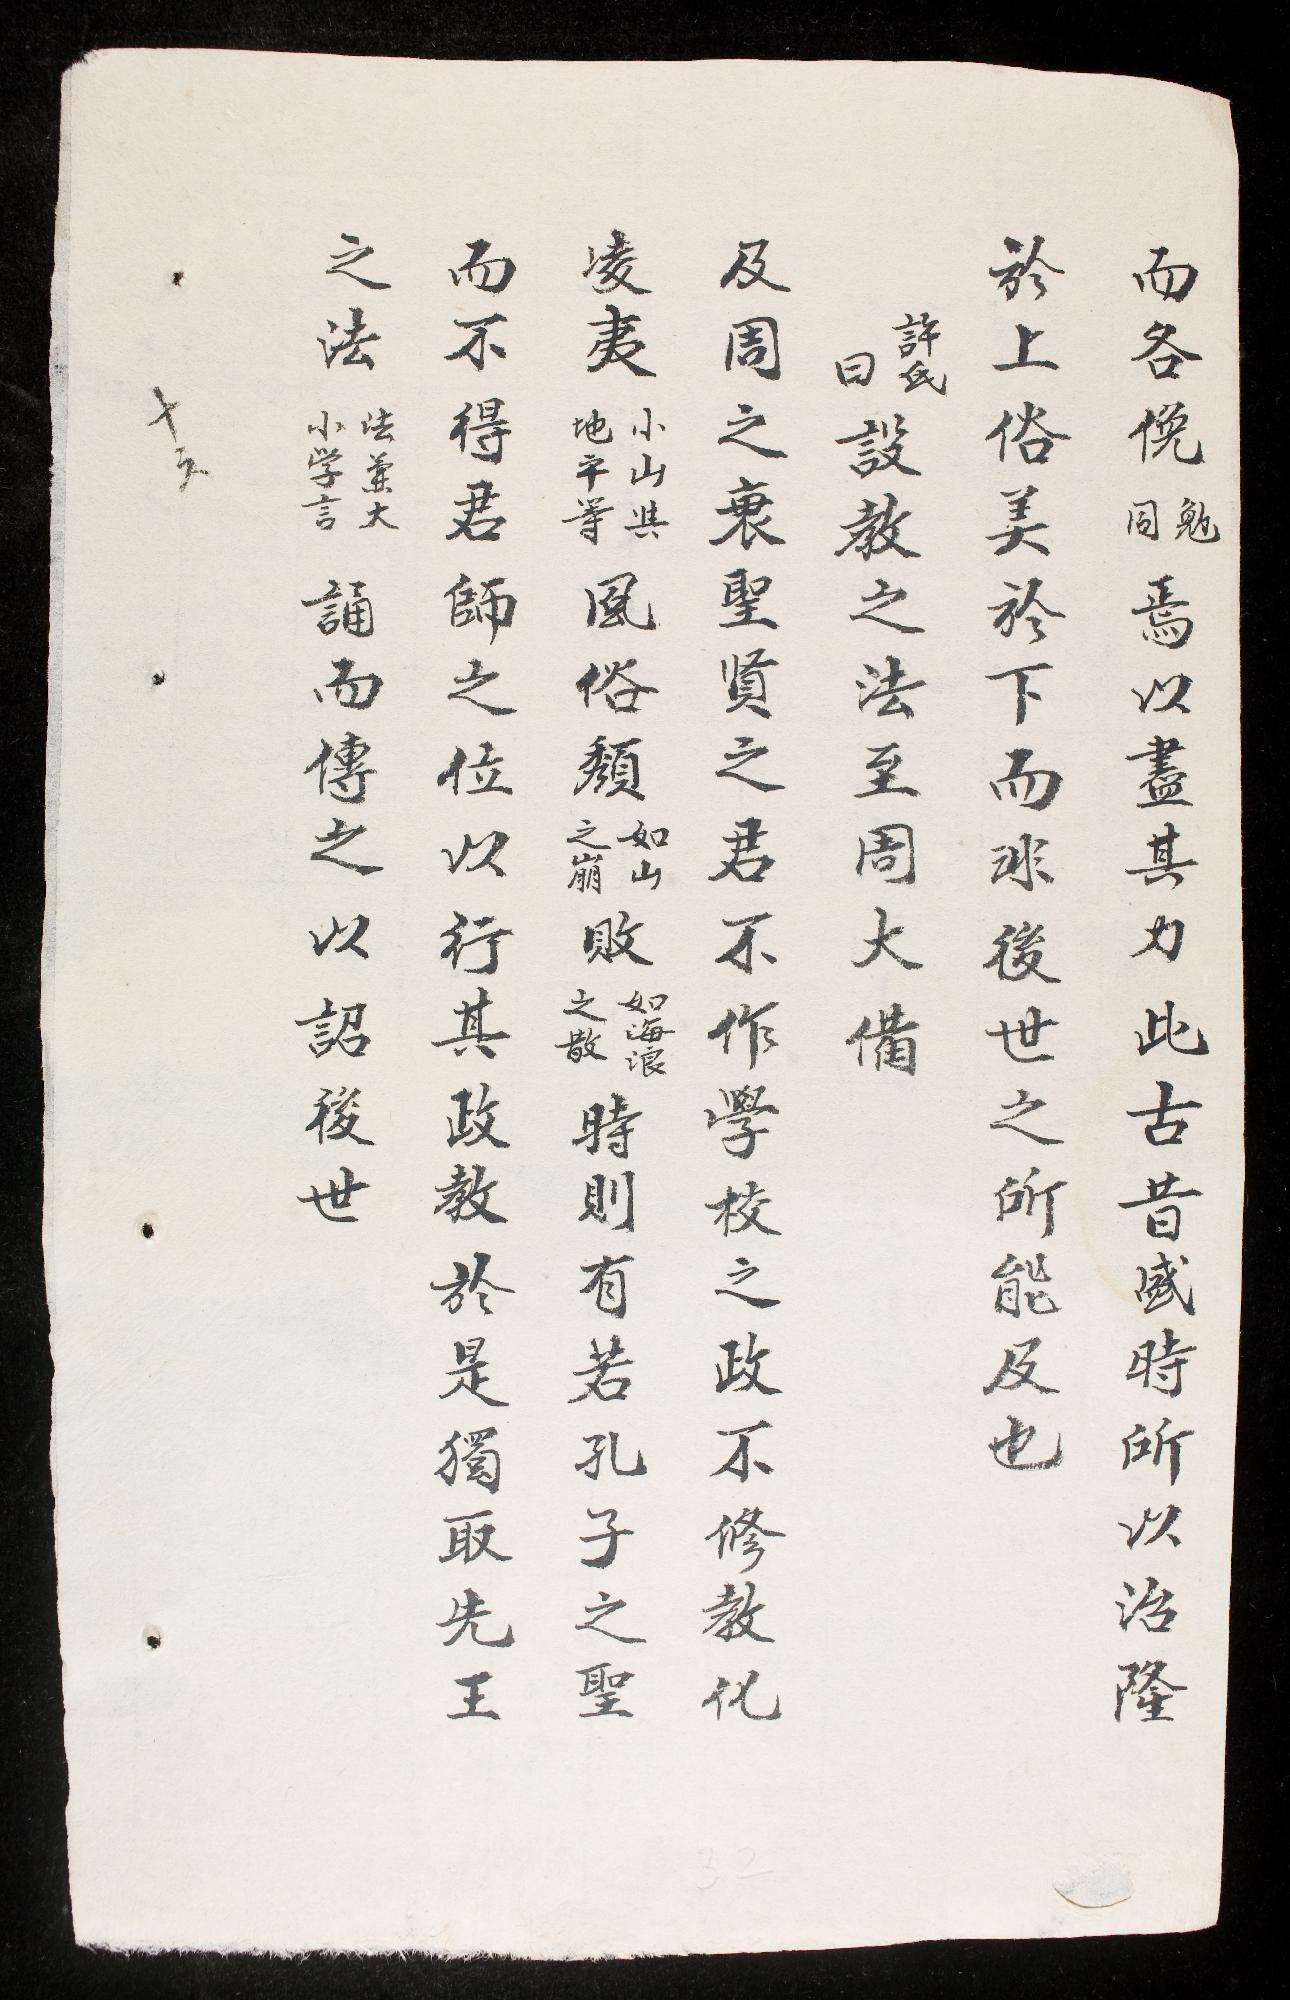 而各俛勉同焉以盡其力此古昔盛時所以治隆
於上俗美於下而非後世之所能及也
許氏曰設教之法至周大備
及周之衰聖賢之君不作學校之政不修教化
凌夷小山與地平等風俗頽如山之崩敗如海浪之散時則有若孔子之聖
而不得君師之位以行其政教於是獨取先王
之法法兼大小学言誦而傳之以詔後世
32